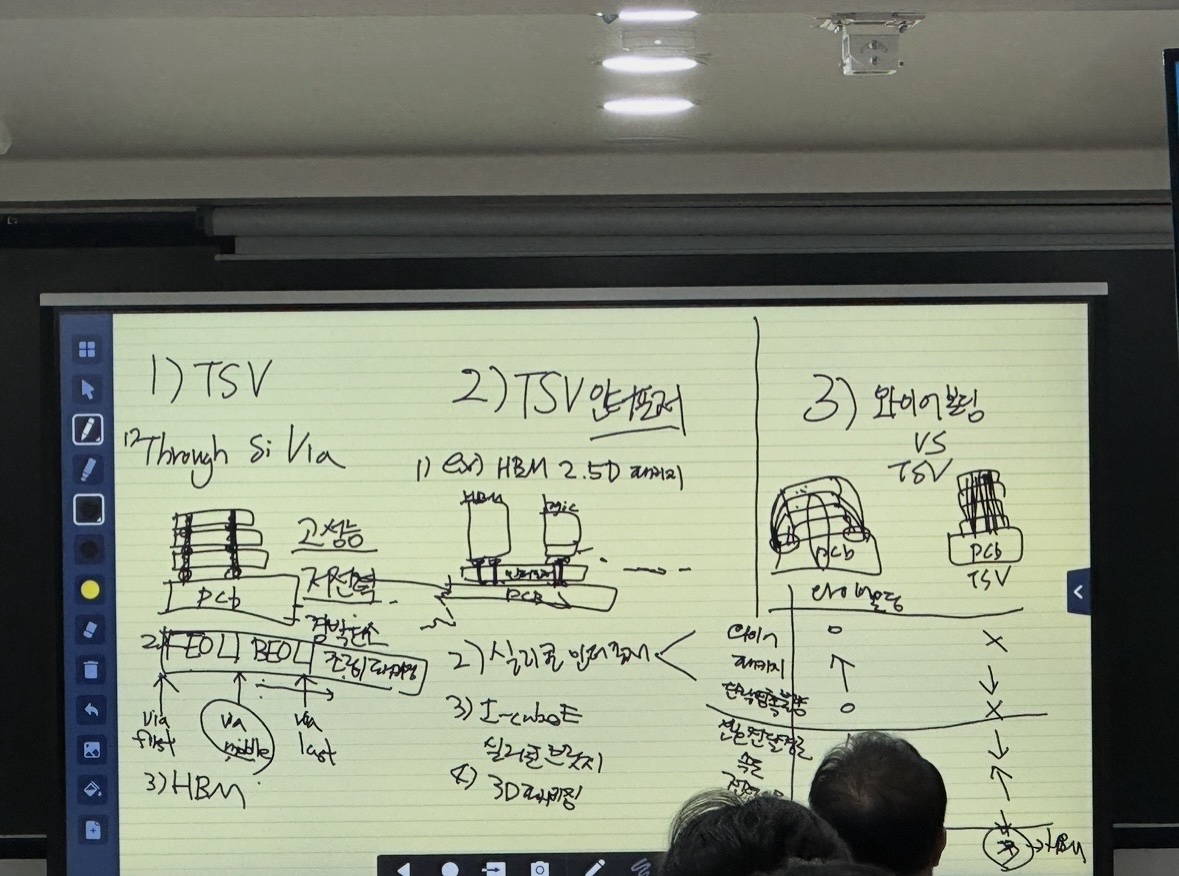 1) TSV
Through Si Via
고성능
저전력
경박단소
PCb
2) FEOL BEOL 조립/패키징
via first
via middle
via last
3) HBM
2) TSV 인터포저
1) ex) HBM 2.5D 패키지
HBM
logic
PCB
2) 실리콘 인터포저
3) I-cubeE
실리콘 브릿지
4) 3D 패키징
3) 와이어 본딩
VS
TSV
PCb
PCb
TSV
와이어 본딩
와이어 o X
패키지 ↑ ↓
o X
신호전달경로 ↓
속도 ↑
↓
→HBM